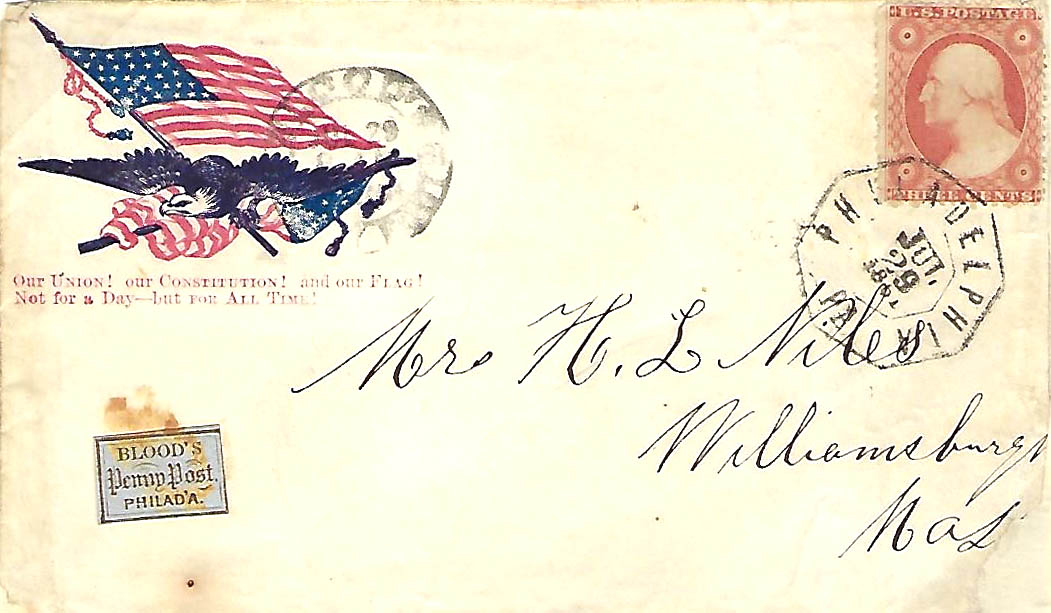 U.S. POSTAGE
THREE CENTS
PHILADELPHIA PA.
JUL
29
29
Our Union! our Constitution! and our Flag!
Not for a Day—but for All Time!
Mrs H. L Niles
Williamsburgh
Mas
BLOOD'S
Penny Post.
PHILAD'A.